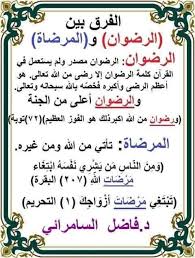 الفرق بين
(الرضوان) و(المرضاة)
الرضوان: مصدر ولم يستعمل في
القرآن كلمة الرضوان إلا رضى من الله تعالى. هو
أعظم الرضى وأكبره فخصّه بالله سبحانه وتعالى.
والرضوان أعلى من الجنة
(ورضوان من الله أكبر ذلك هو الفوز العظيم)(٧٢)توبة)
المرضاة: تأتي من الله ومن غيره.
(وَمِنَ النَّاسِ مَن يَشْرِي نَفْسَهُ ابْتِغَاء
مَرْضَاتِ اللّهِ (٢٠٧) البقرة)
(تَبْتَغِي مَرْضَاتَ أَزْوَاجِكَ (١) التحريم)
د.فاضل السامرائي